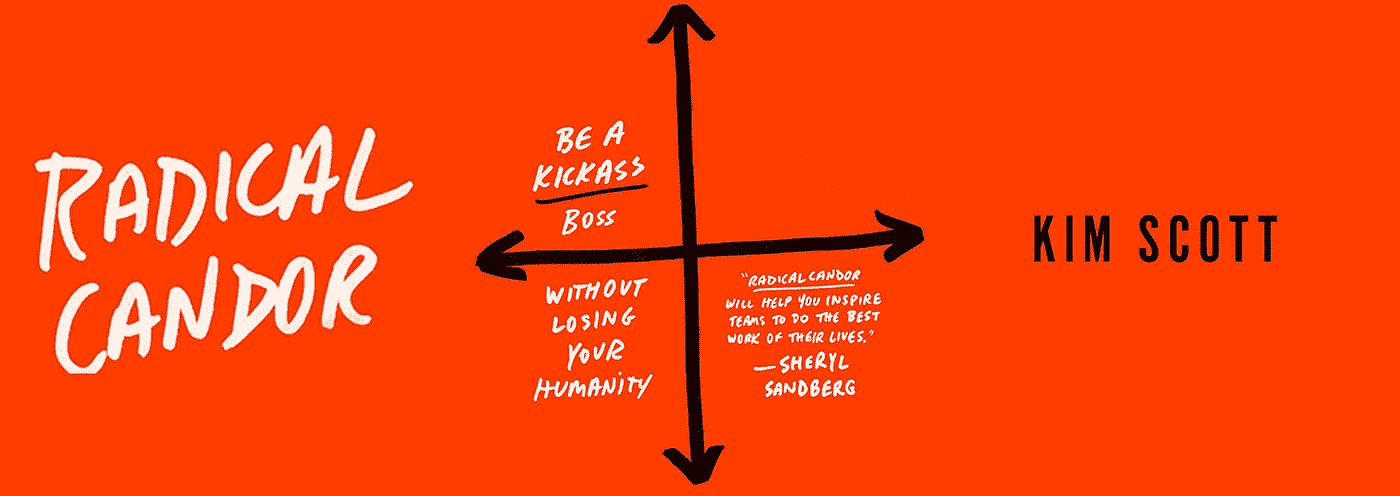 RADICAL
CANDOR
BE A
KICKASS
BOSS
WITHOUT
LOSING
YOUR
HUMANITY
"RADICAL CANDOR
WILL HELP YOU INSPIRE
TEAMS TO DO THE BEST
WORK OF THEIR LIVES."
—SHERYL
SANDBERG
KIM SCOTT